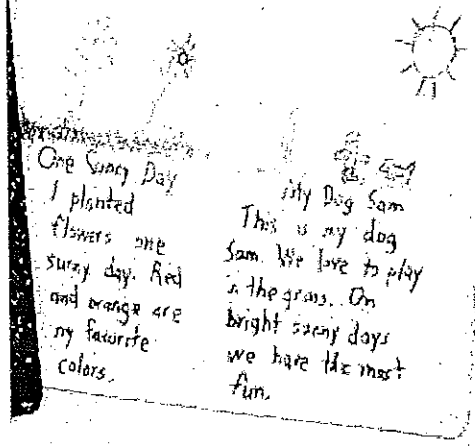 One Sunny Day
I planted
flowers one
sunny day. Red
and orange are
my favorite
colors.
My Dog Sam
This is my dog
Sam. We love to play
in the grass. On
bright sunny days
we have the most
fun.